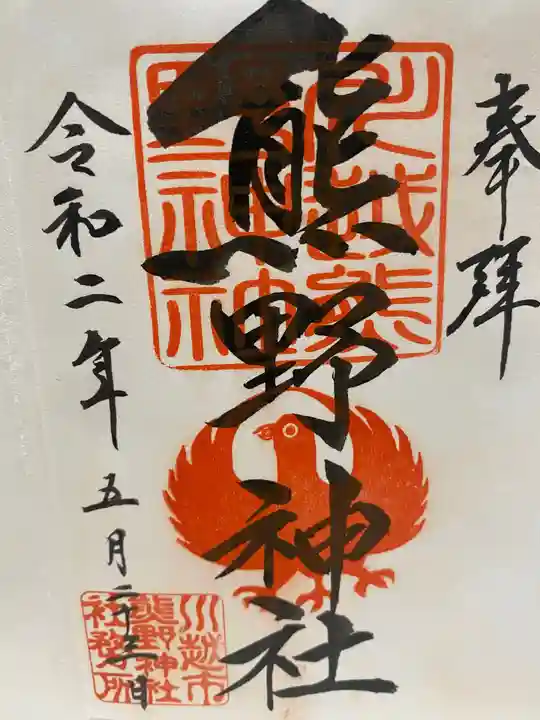 奉拝
熊野神社
令和二年五月二十三日
川越市
熊野神社
社務所